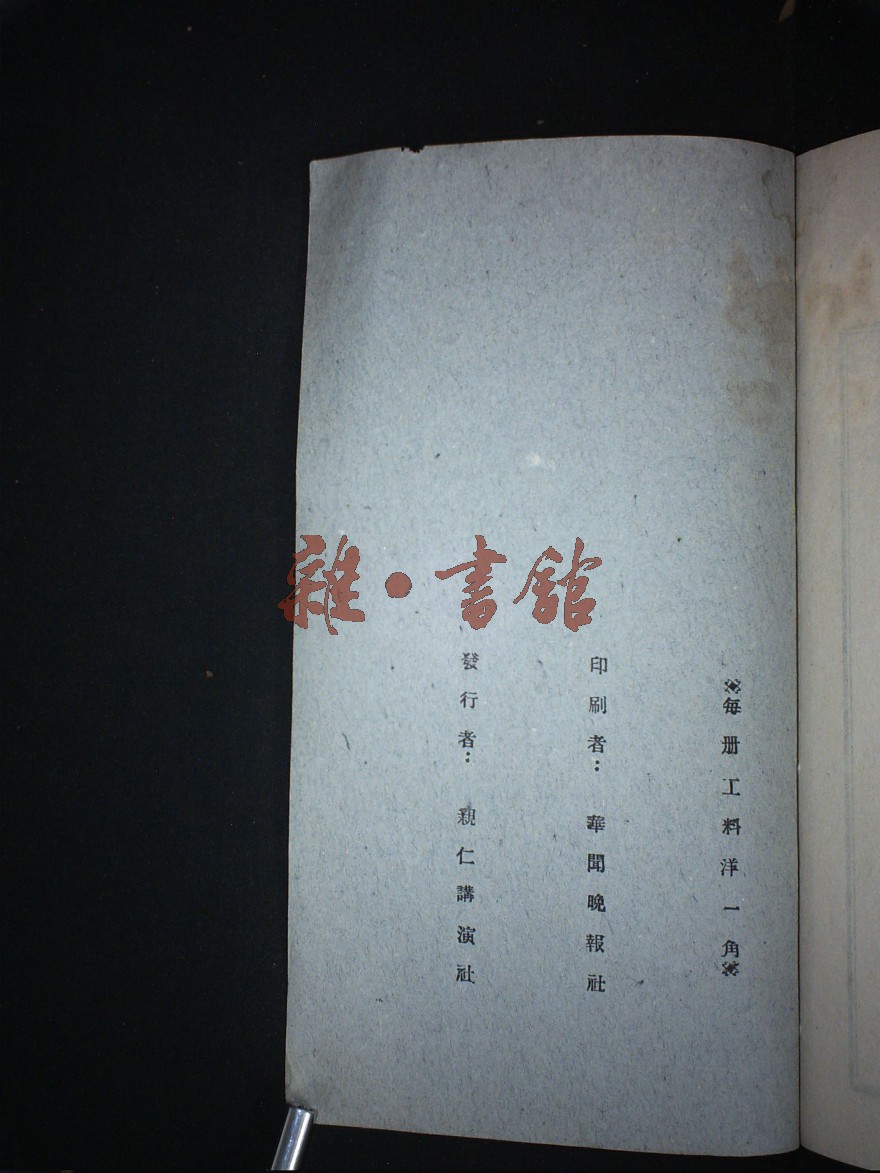 ※每册工料洋一角※
印刷者： 華聞晚報社
發行者： 親仁講演社
雜•書館